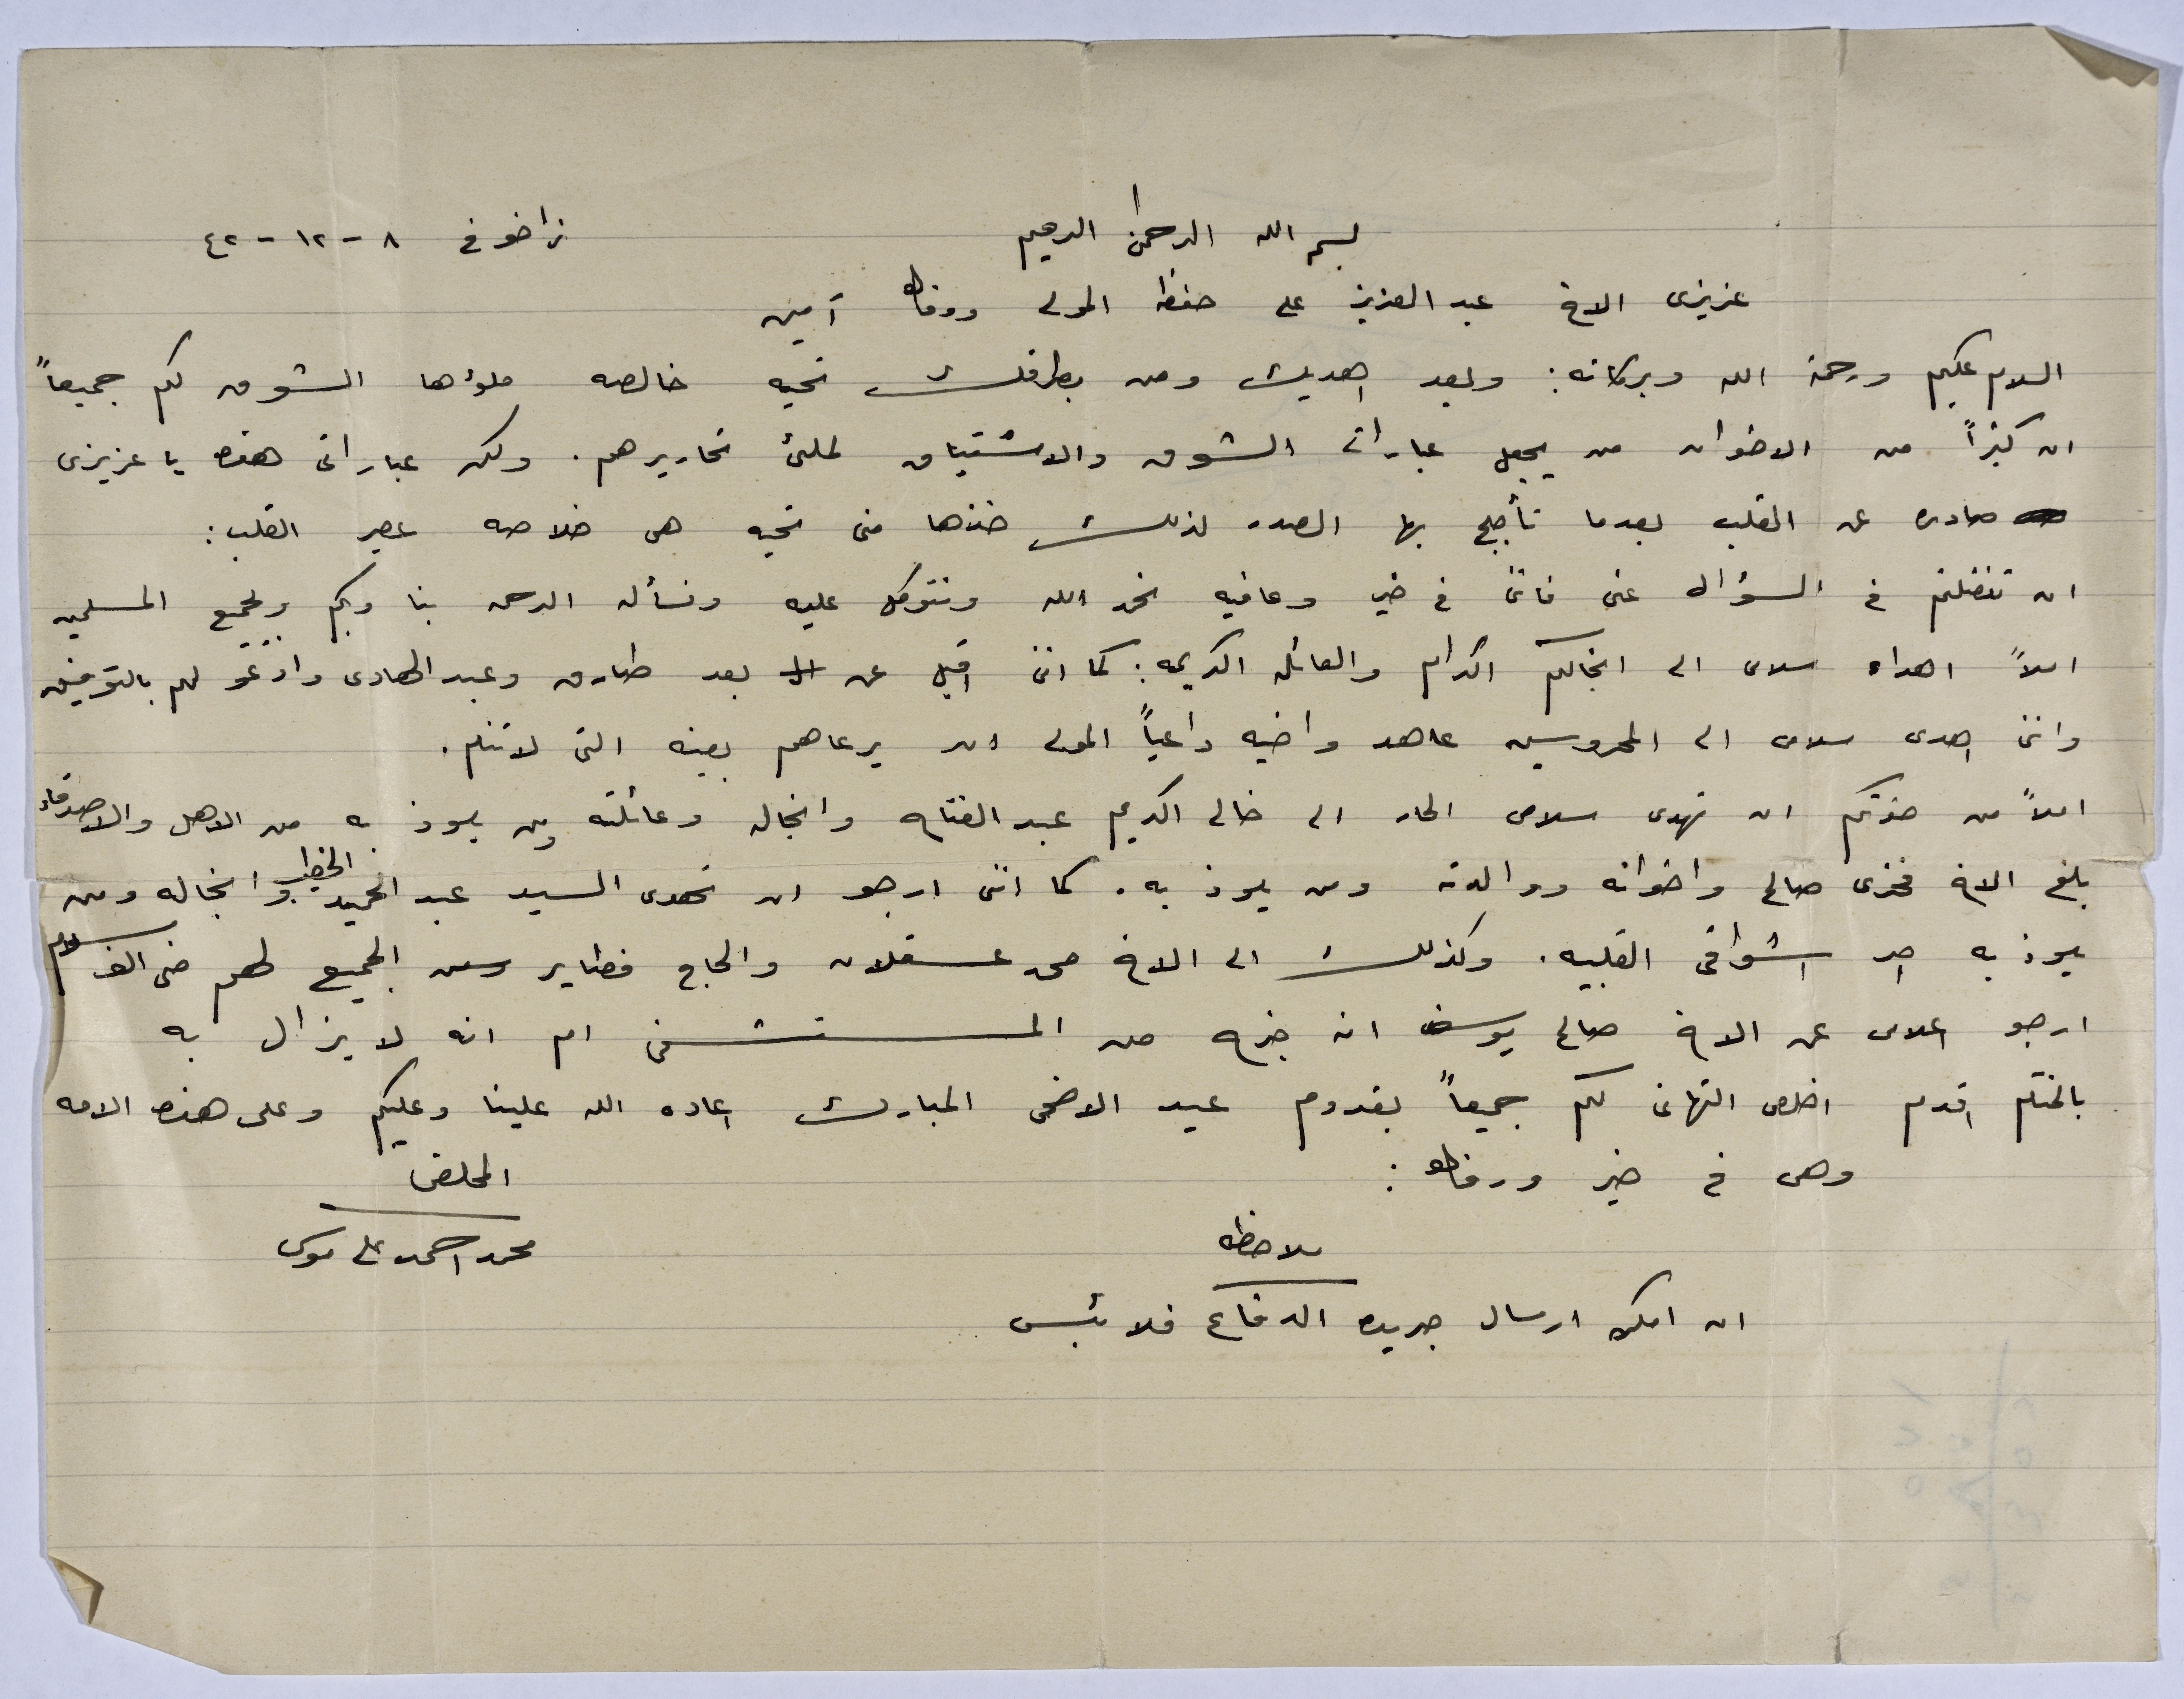 بسم الله الرحمن الرحيم
زاخو في ٨ - ١٢ - ٤٢
عزيزى الاخ عبد العزيز علي حفظه المولى ووفاه آمين
السلام عليكم ورحمة الله وبركاته: وبعد اهديك ومن بطرفك تحيه خالصه ملؤها الشوق لكم جميعاً
ان كثيراً من الاخوان من يجعل عبارات الشوق والاشتياق لملئ تحاريرهم. ولكن عباراتى هذه يا عزيزى
صادره عن القلب بعدما تأجج بها الصدر لذلك خذها منى تحيه هى خلاصه عصير القلب:
ان تفضلتم في السؤال عنى فاننى في خير وعافيه نحمد الله ونتوكل عليه ونسأله الرحمه بنا وبكم وبجميع المسلمين
املاً اهداء سلامى الى انجالكم الكرام والعائله الكريمه: كما اننى اقبل عن بعد طارق وعبد الهادى وادعو لهم بالتوفيق
واننى اهدى سلامى الى المحروسين عاهد واخيه داعياً المولى ان يرعاهم بعينه التى لا تنام.
املاً من حضرتكم ان تهدى سلامى الحار الى خالى الكريم عبد الفتاح وانجاله وعائلته ومن يلوذ به من الاهل والاصدقاء
بلغ الاخ فخرى صالح واخوانه ووالدته ومن يلوذ به. كما اننى ارجو ان تهدى السيد عبد الحميد الخطيب وانجاله ومن
يلوذ به احر اشواقى القلبيه. وكذلك الى الاخ محمد عسقلان والحاج فطاير ومن الجميع لهم منى الف سلام
ارجو اعلامى عن الاخ صالح يوسف انه خرج من المستشفى ام انه لا يزال به
بالختام اقدم اخلص التهانى لكم جميعاً بقدوم عيد الاضحى المبارك اعاده الله علينا وعليكم وعلى هذه الامه
وهى في خير ورفاه:
المخلص
محمد احمد علي موسى
ملاحظه
ان امكن ارسال جريده الدفاع فلا بئس